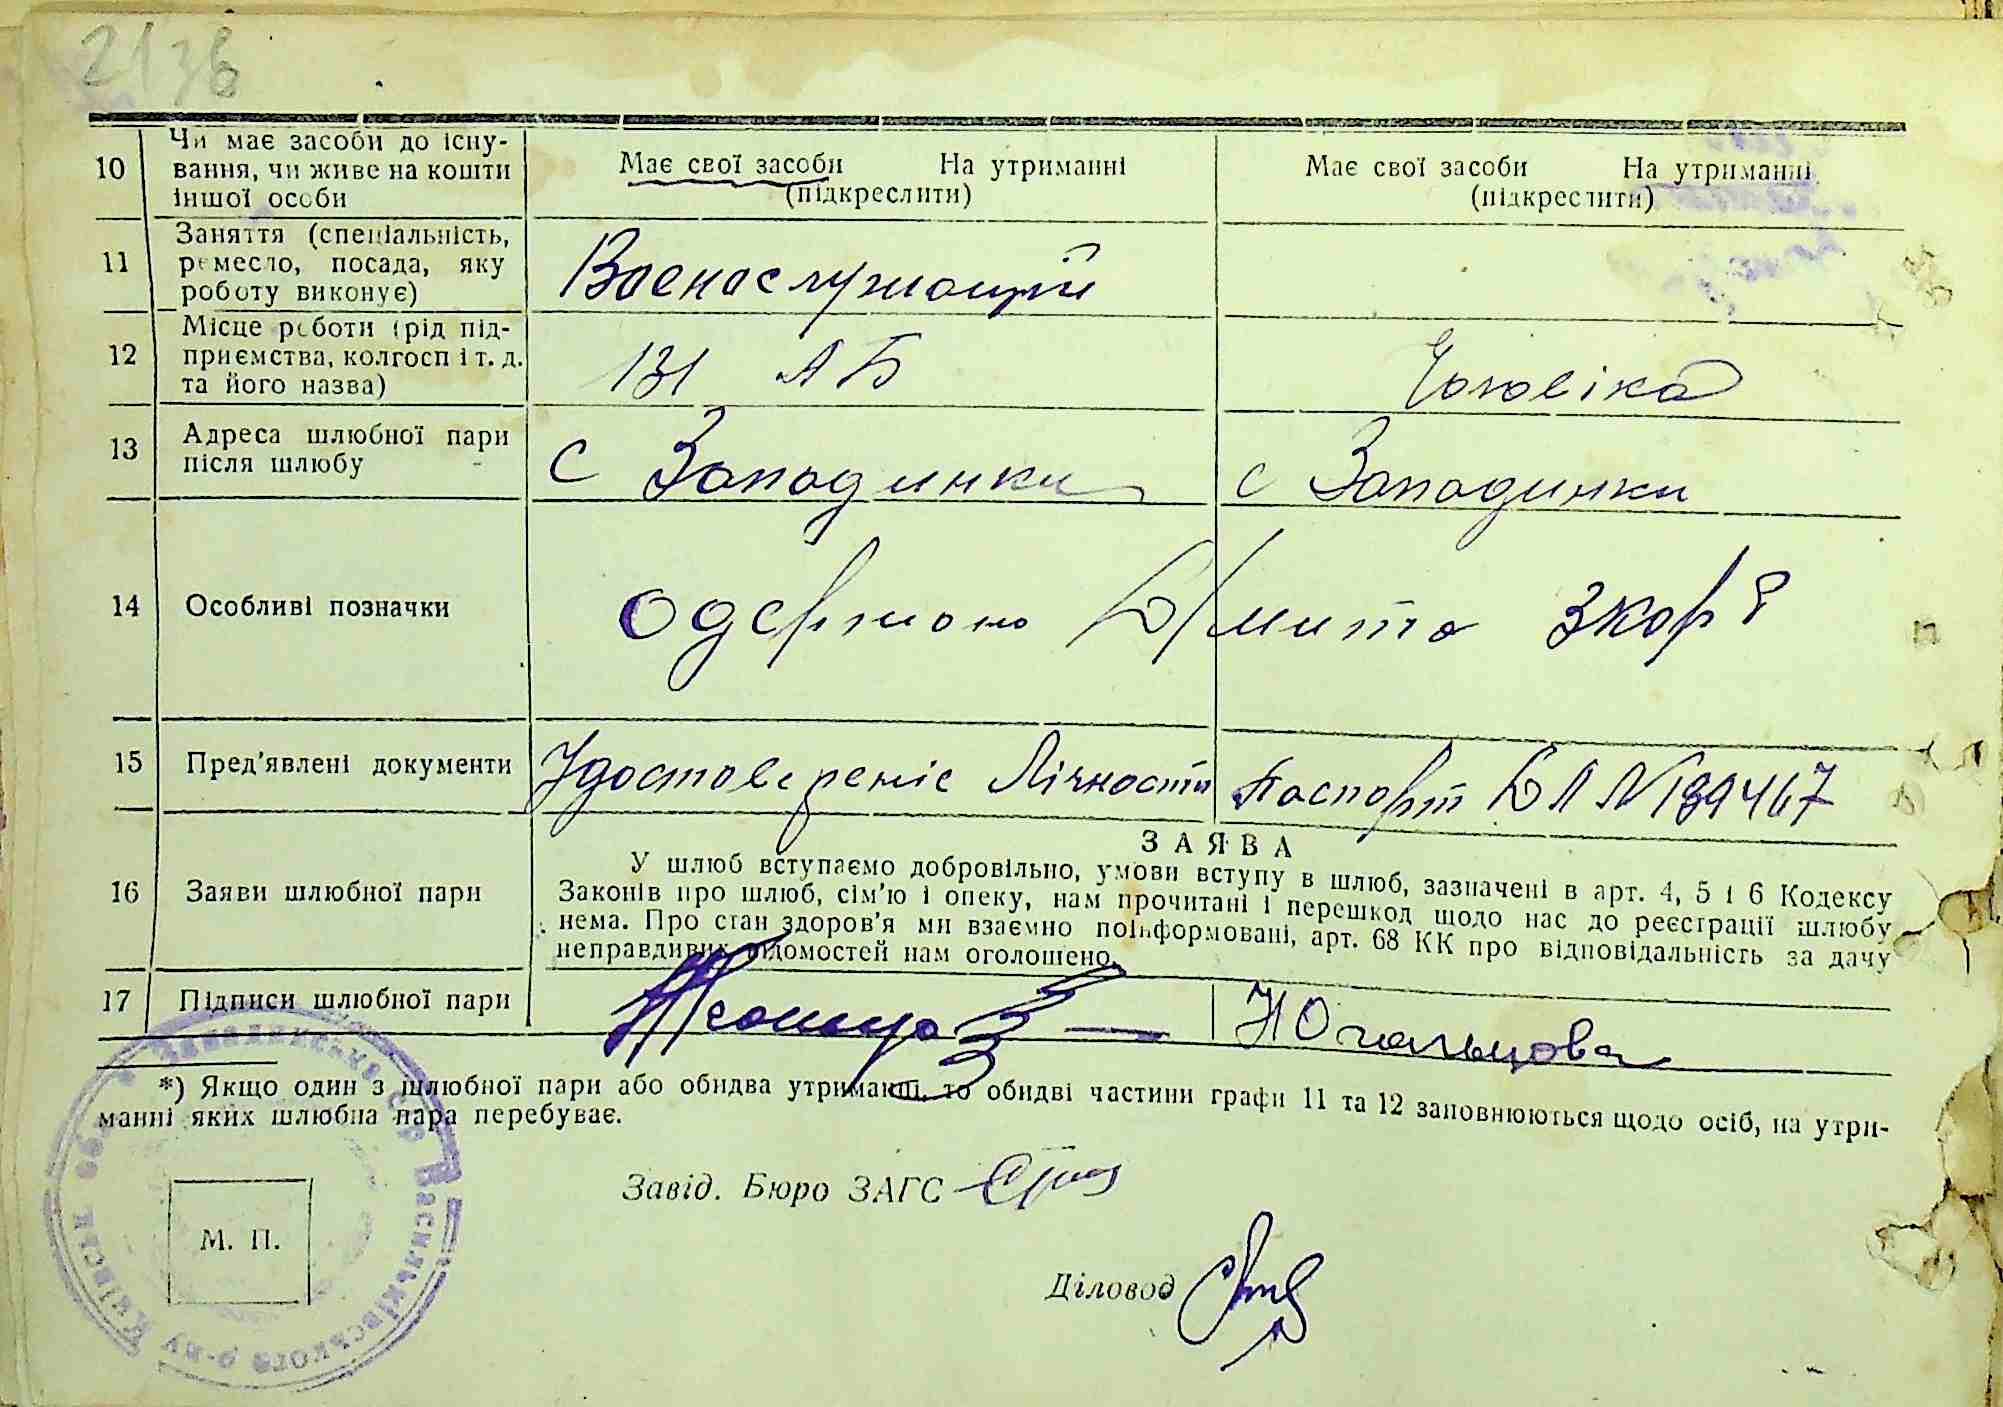 213в
10 Чи має засоби до існу-
вання, чи живе на кошти
іншої особи
Має свої засоби На утриманні
(підкреслити)
Має свої засоби На утриманні
(підкреслити)
11 Заняття (спеціальність,
ремесло, посада, яку
роботу виконує)
Воєнаслужощій
12 Місце роботи (рід під-
приємства, колгосп і т. д.
та його назва)
131 АБ
Чоловіка
13 Адреса шлюбної пари
після шлюбу
с Западинки
с Западинки
14 Особливі позначки
Одержано мита
15 Пред'явлені документи
Удостовереніе Лічности
Паспорт
16 Заяви шлюбної пари
ЗАЯВА
У шлюб вступаємо добровільно, умови вступу в шлюб, зазначені в арт. 4, 5 і 6 Кодексу
Законів про шлюб, сім'ю і опеку, нам прочитані і перешкод щодо нас до реєстрації шлюбу
нема. Про стан здоров'я ми взаємно поінформовані, арт. 68 КК про відповідальність за дачу
неправдивих відомостей нам оголошено.
17 Підписи шлюбної пари
*) Якщо один з шлюбної пари або обидва утриманці, то обидві частини графи 11 та 12 заповнюються щодо осіб, на утри-
манні яких шлюбна пара перебуває.
Завід. Бюро ЗАГС
М. П.
Діловод
Васильківського р-ну Київськ обл